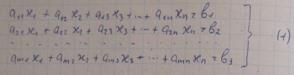 a₁₁x₁ + a₁₂x₂ + a₁₃x₃ + ... + a₁ₙxₙ = b₁
a₂₁x₁ + a₂₂x₂ + a₂₃x₃ + ... + a₂ₙxₙ = b₂
. . . . . . . . . . . . . . . (1)
aₘ₁x₁ + aₘ₂x₂ + aₘ₃x₃ + ... + aₘₙxₙ = b₃